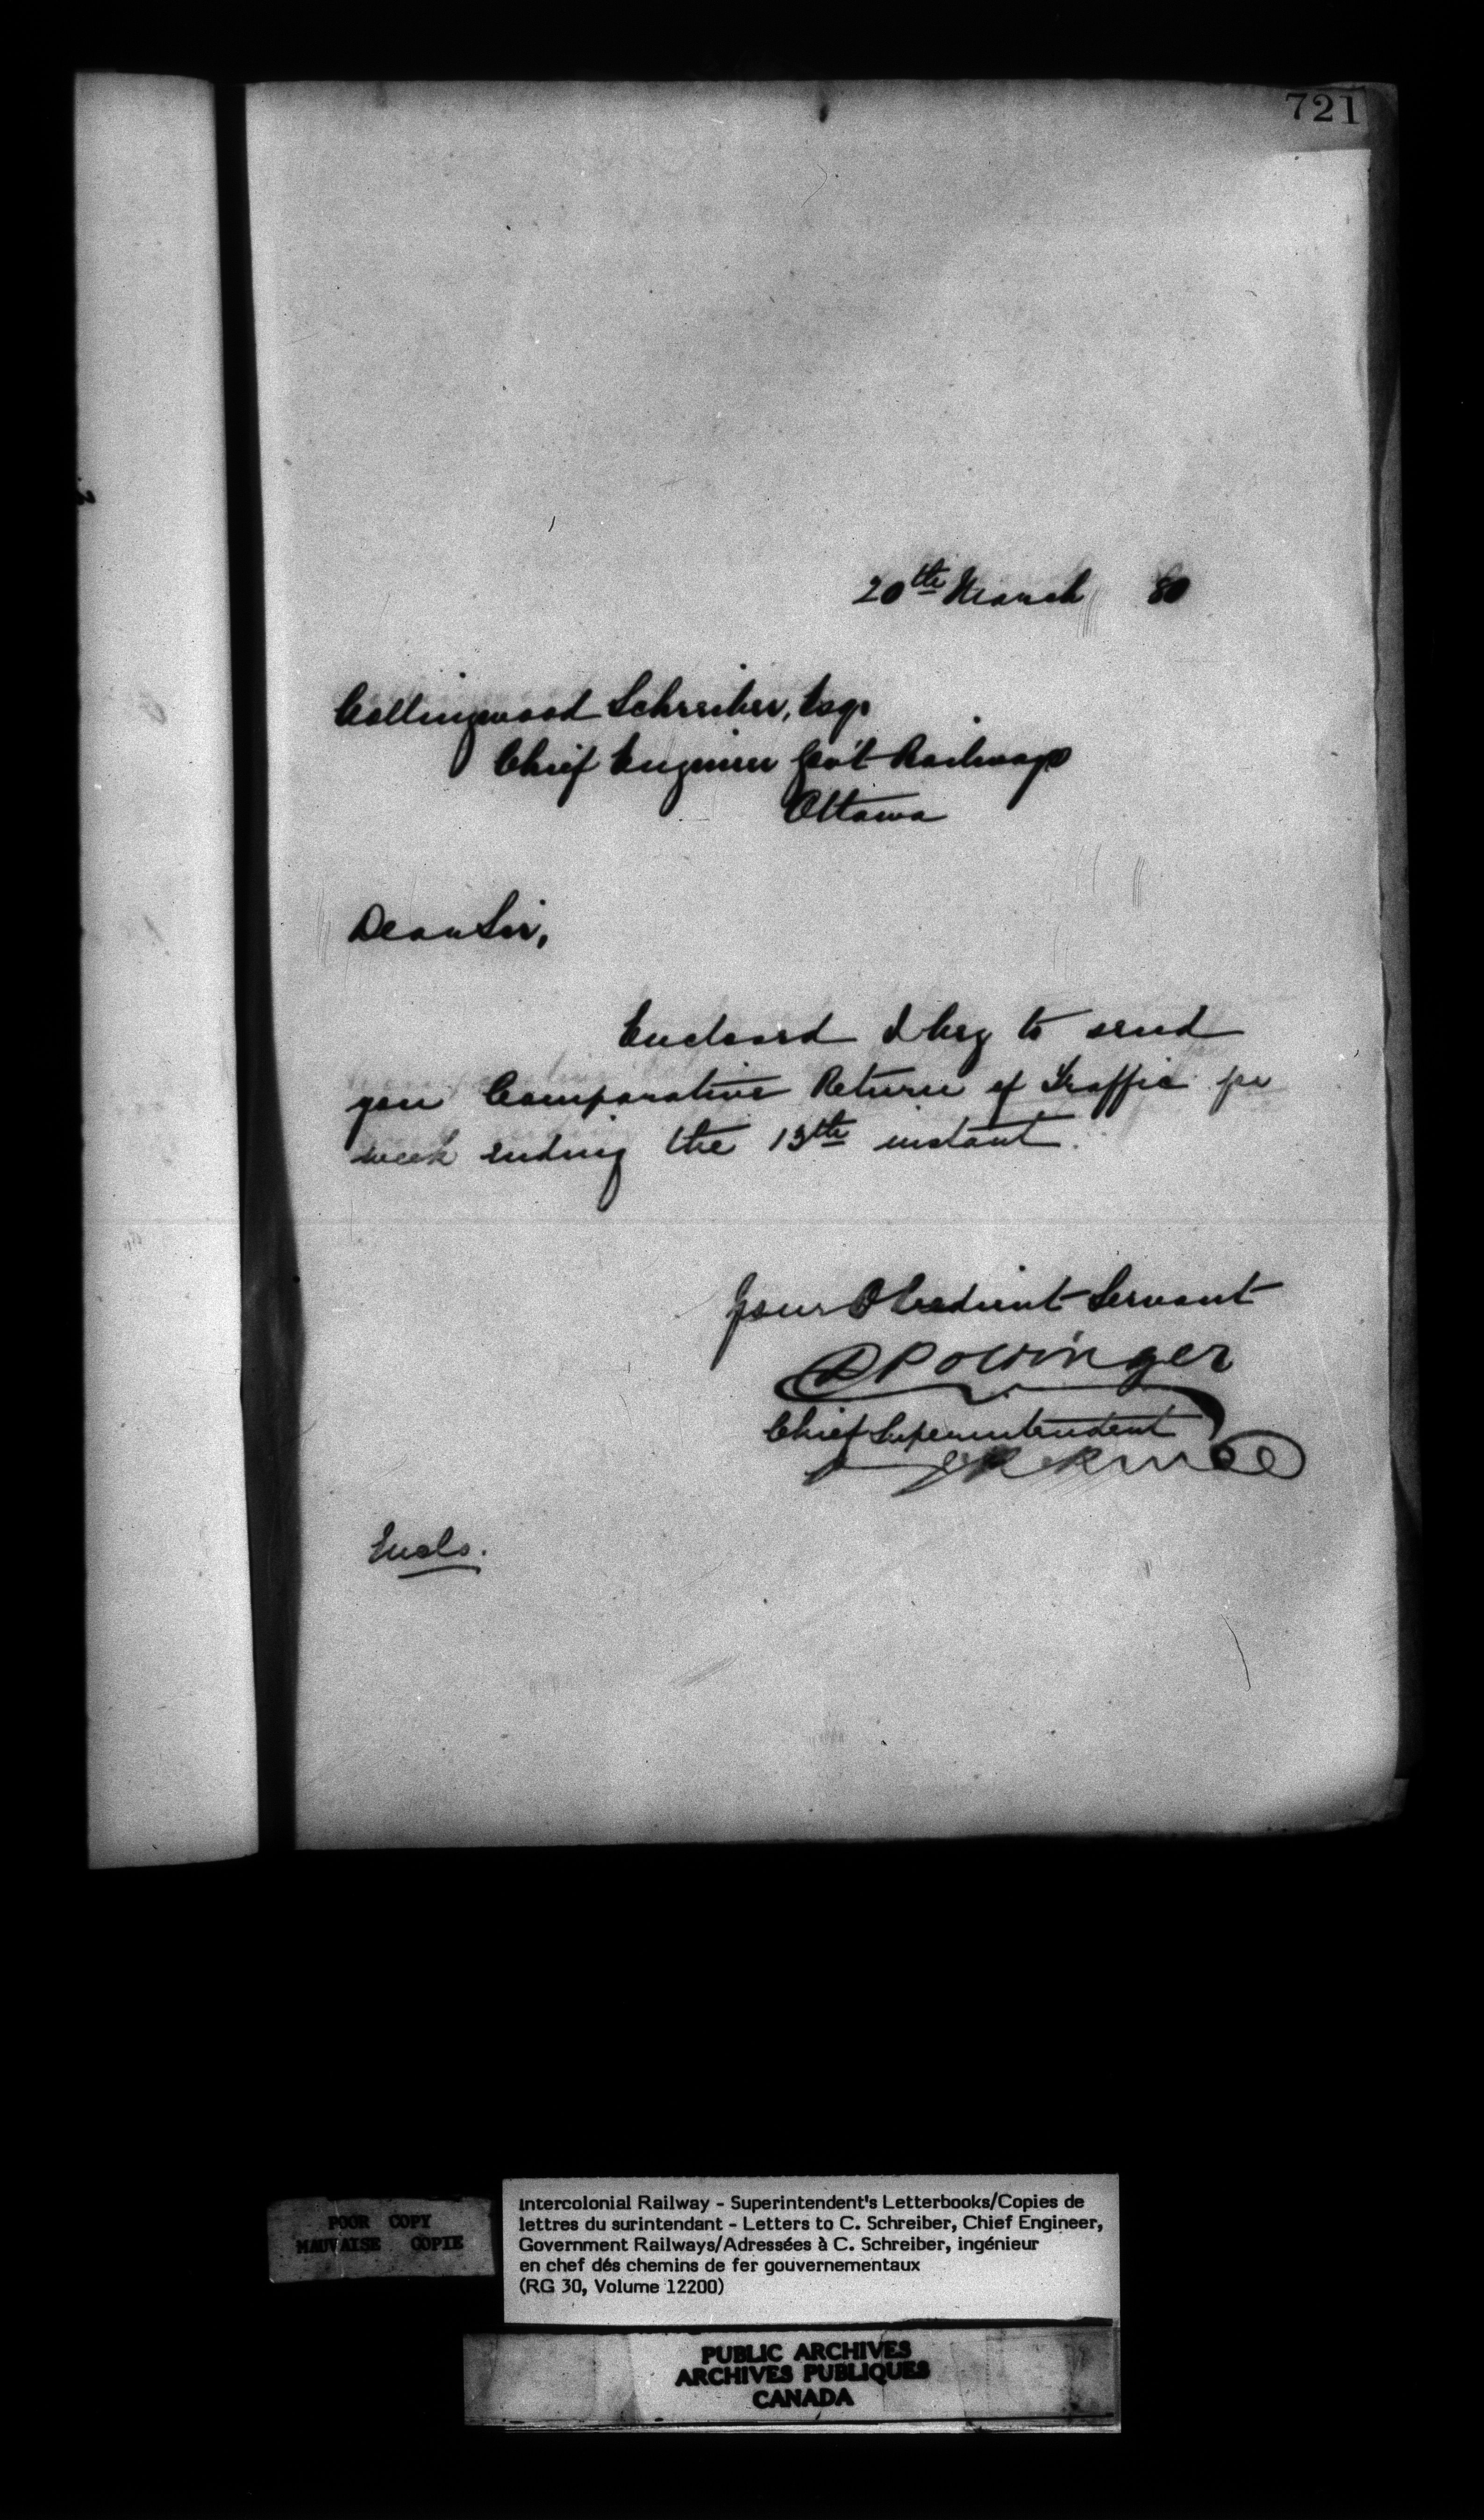 721
20th March 80
Collingwood Schreiber, Esqr
Chief Engineer Gov't Railways
Ottawa
Dear Sir,
Enclosed I beg to send
you Comparative Return of Traffic for
week ending the 13th instant.
Your Obedient Servant
D Pottinger
Chief Superintendent
Encls.
POOR COPY
MAUVAISE COPIE
Intercolonial Railway - Superintendent's Letterbooks/Copies de
lettres du surintendant - Letters to C. Schreiber, Chief Engineer,
Government Railways/Adressées à C. Schreiber, ingénieur
en chef dés chemins de fer gouvernementaux
(RG 30, Volume 12200)
PUBLIC ARCHIVES
ARCHIVES PUBLIQUES
CANADA